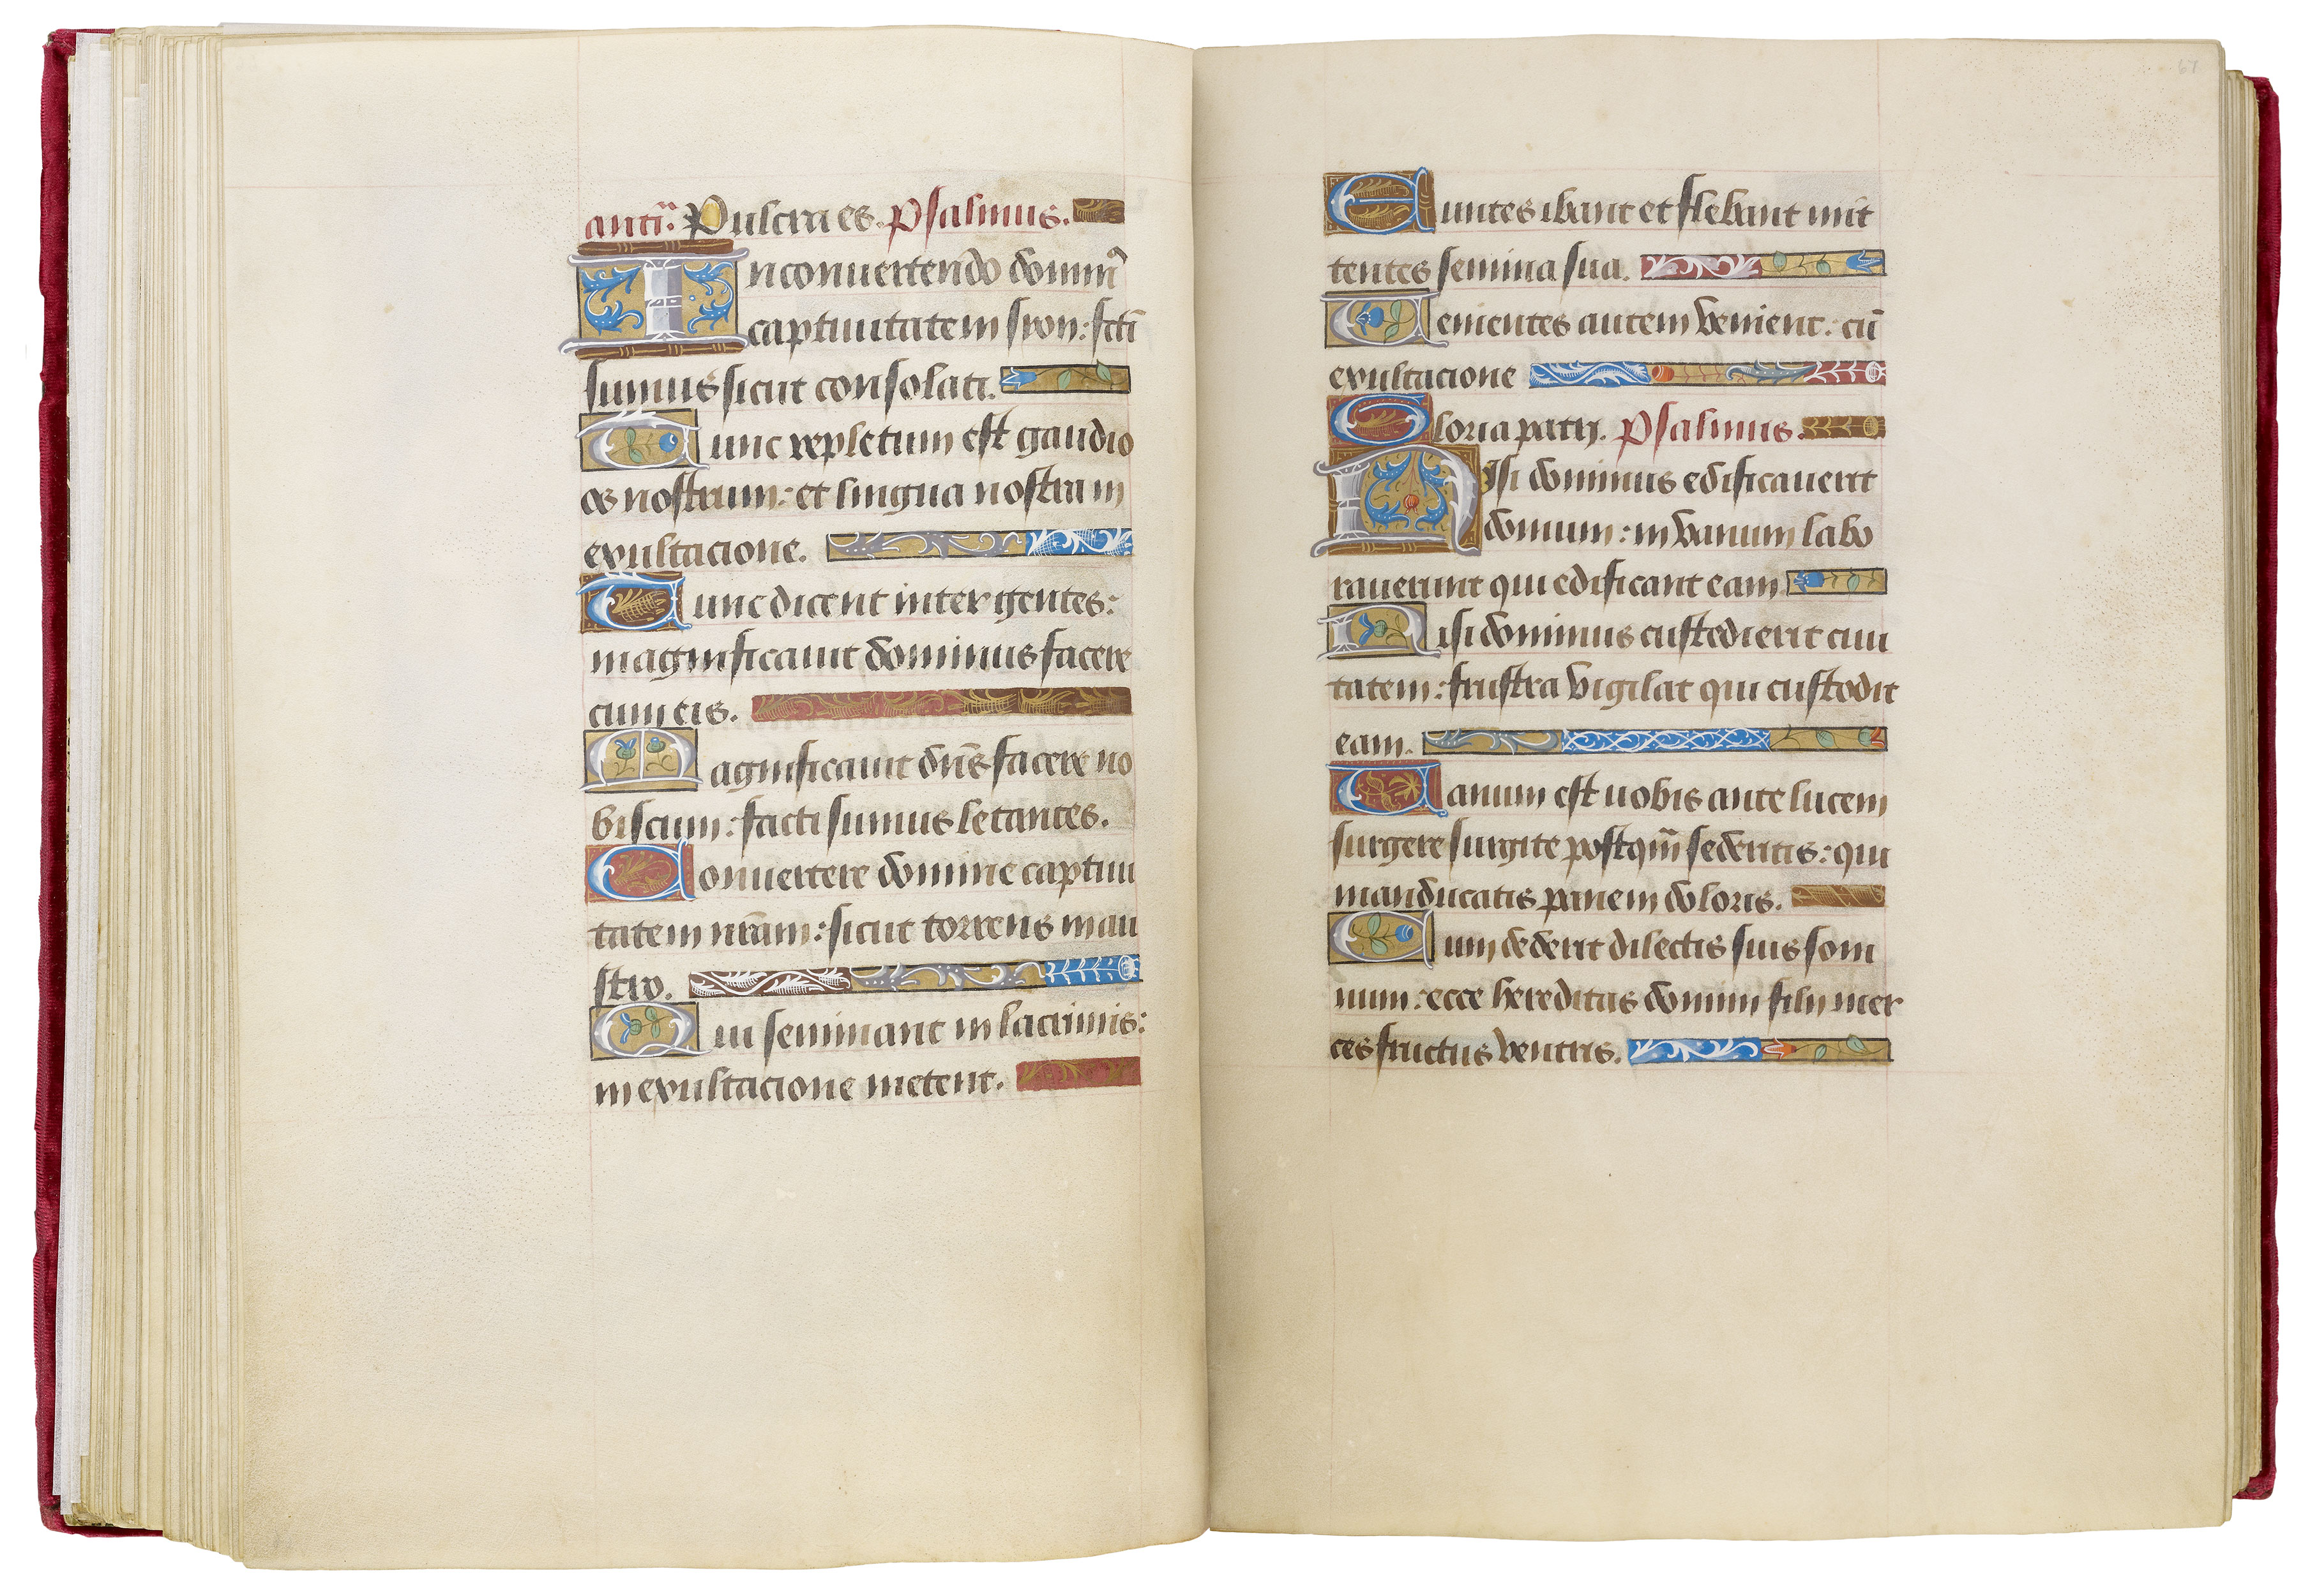 antiā. Pulcra es. Psalmus.
In convertendo domin̄
captivitatem syon: fcti
sumus sicut consolati.
Tunc repletum est gaudio
os nostrum: et lingua nostra in
exultacione.
Tunc dicent inter gentes:
magnificavit dominus facere
cum eis.
Magnificavit dn̄s facere no
biscum: facti sumus letantes.
Convertere domine captivi
tatem nr̄am: sicut torrens in au
stro.
Qui seminant in lacrimis:
in exultacione metent.
67
Euntes ibant et flebant mit
tentes semina sua.
Venientes autem venient: cū
exultacione
Gloria patrj. Psalmus.
Nisi dominus edificaverit
domum: in vanum labo
raverunt qui edificant eam
Nisi dominus custodierit civi
tatem: frustra vigilat qui custodit
eam.
Vanum est vobis ante lucem
surgere surgite postqm̄ sederitis: qui
manducatis panem doloris.
Cum dederit dilectis suis som
num: ecce hereditas domini filij mer
ces fructus ventris.